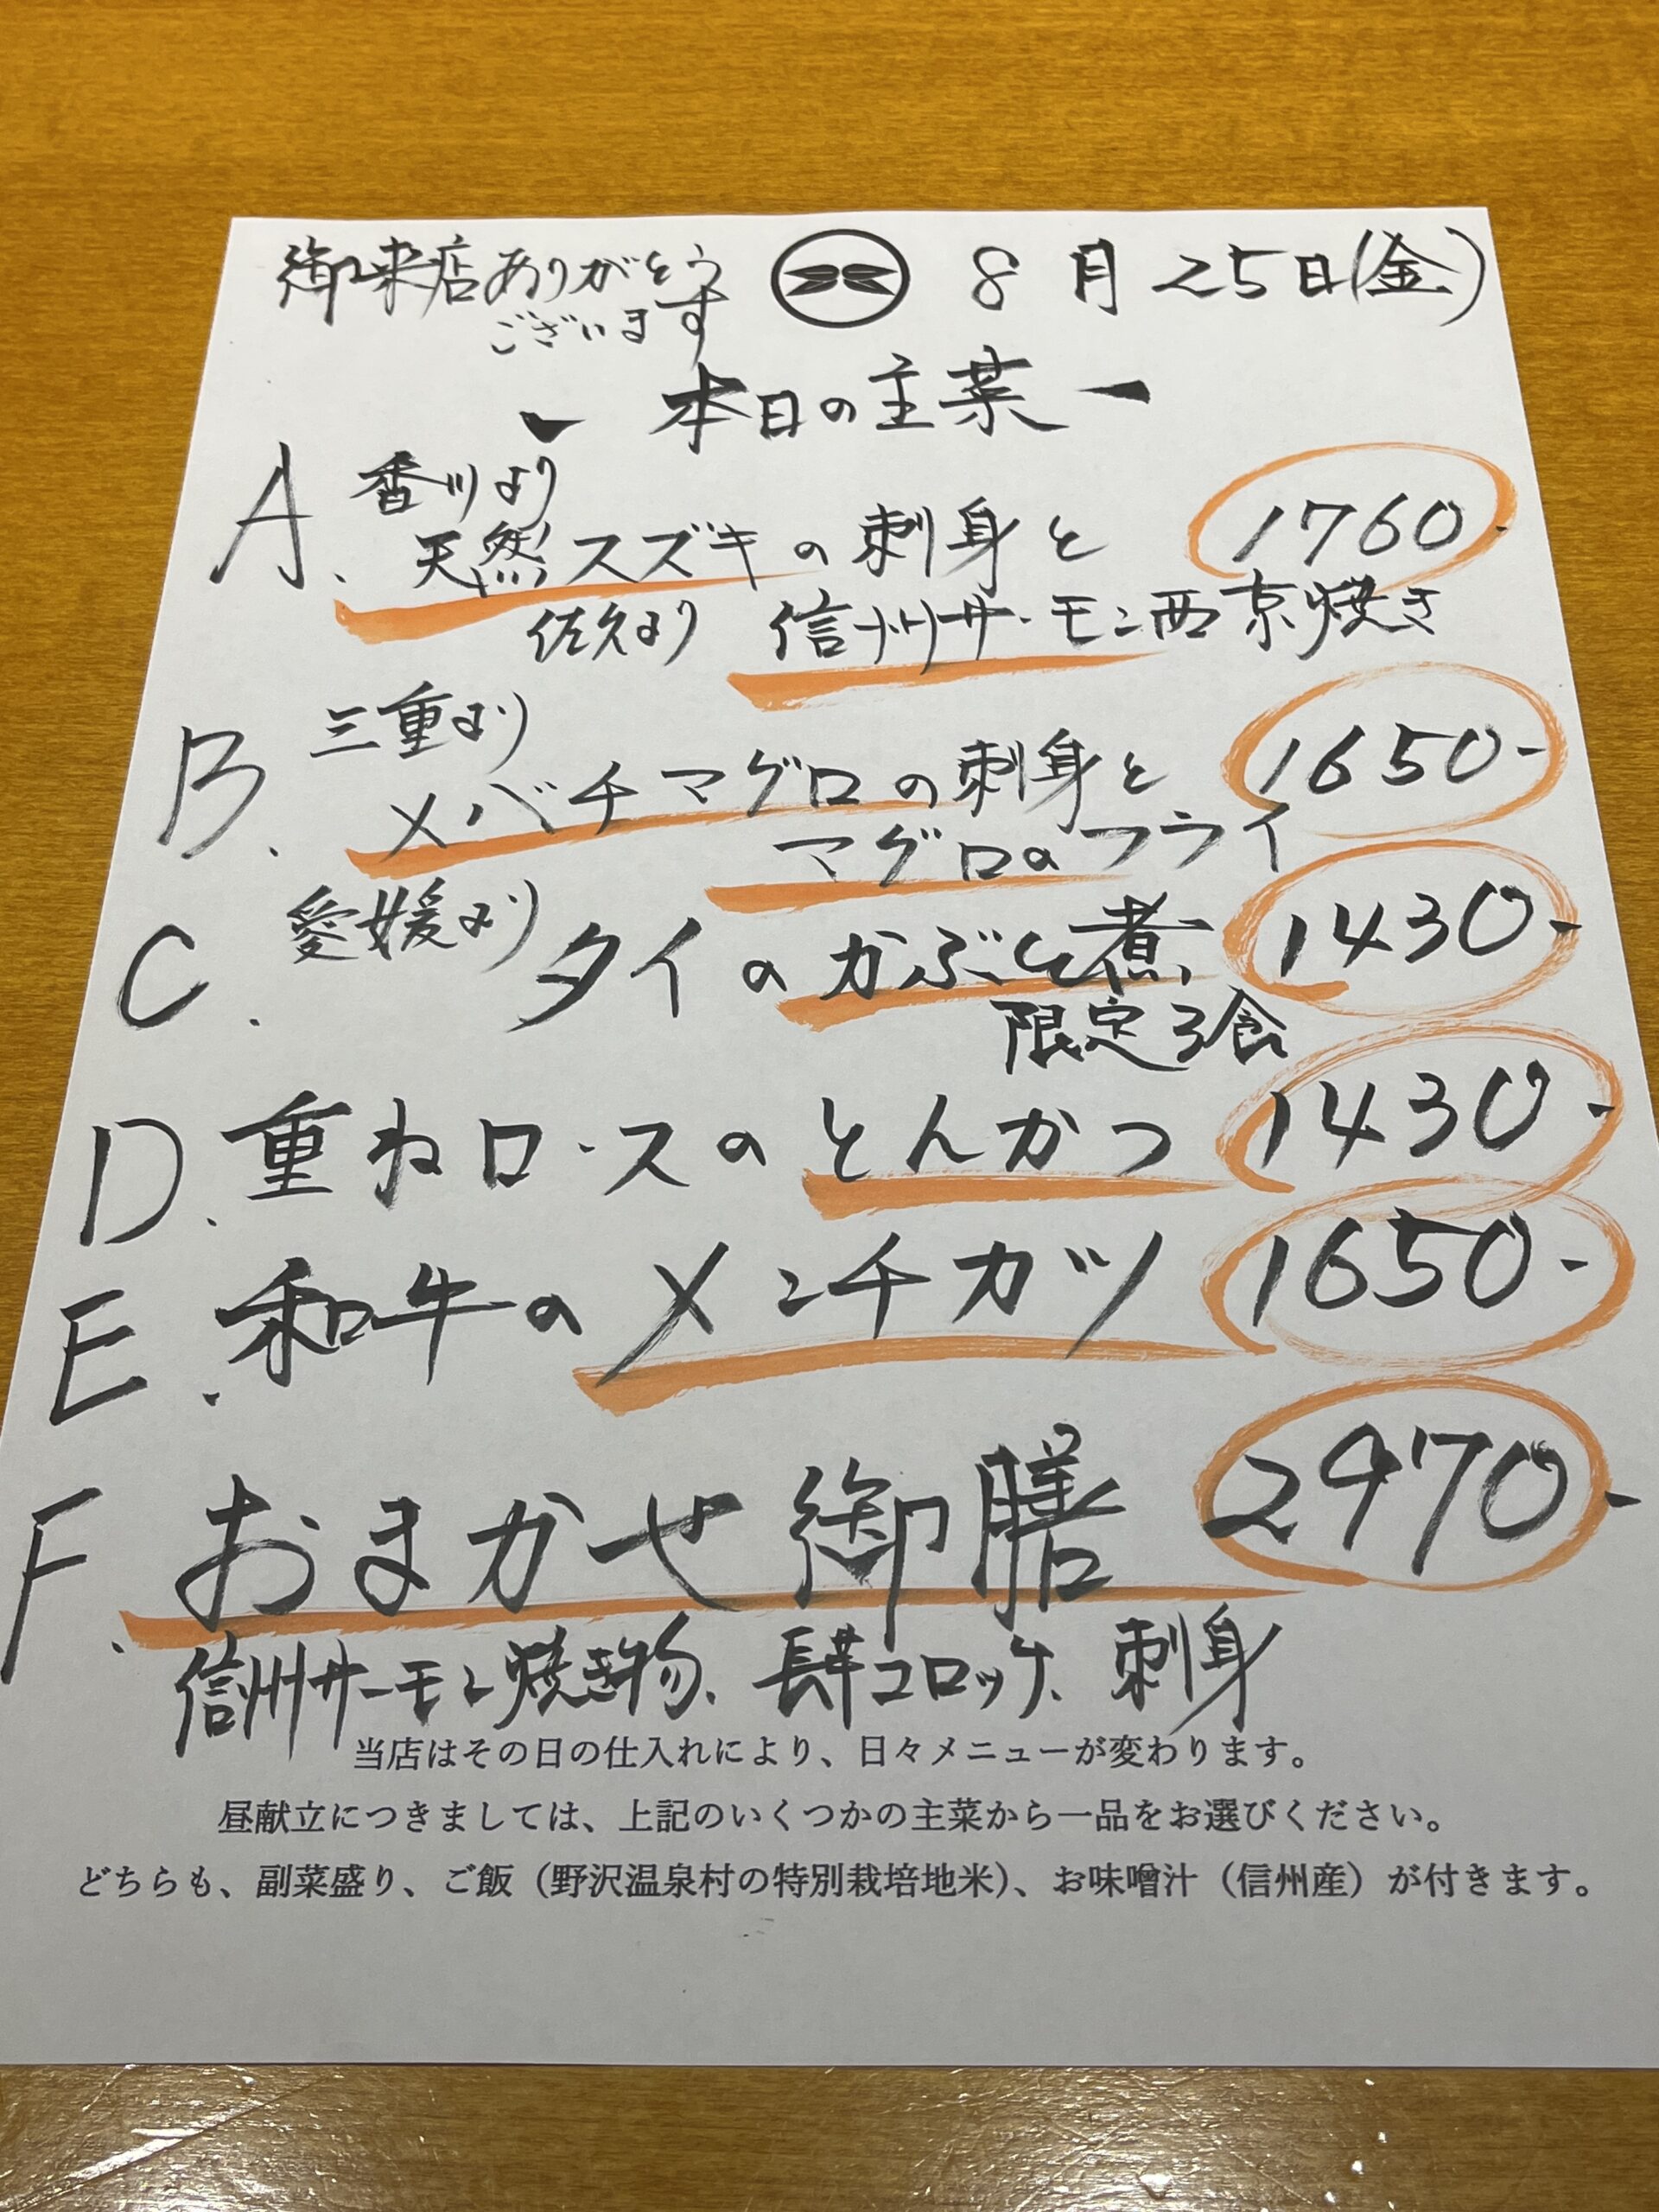 御来店ありがとう
ございます
8月25日(金)
本日の主菜
A. 香川より
天然スズキの刺身と 1760-
佐久より 信州サーモン西京焼き
B. 三重より
メバチマグロの刺身と 1650-
マグロのフライ
C. 愛媛より タイのかぶと煮 1430-
限定3食
D. 重ねロースのとんかつ 1430-
E. 和牛のメンチカツ 1650-
F. おまかせ御膳 2970-
信州サーモン焼き物、長芋コロッケ、刺身
当店はその日の仕入れにより、日々メニューが変わります。
昼献立につきましては、上記のいくつかの主菜から一品をお選びください。
どちらも、副菜盛り、ご飯（野沢温泉村の特別栽培地米）、お味噌汁（信州産）が付きます。